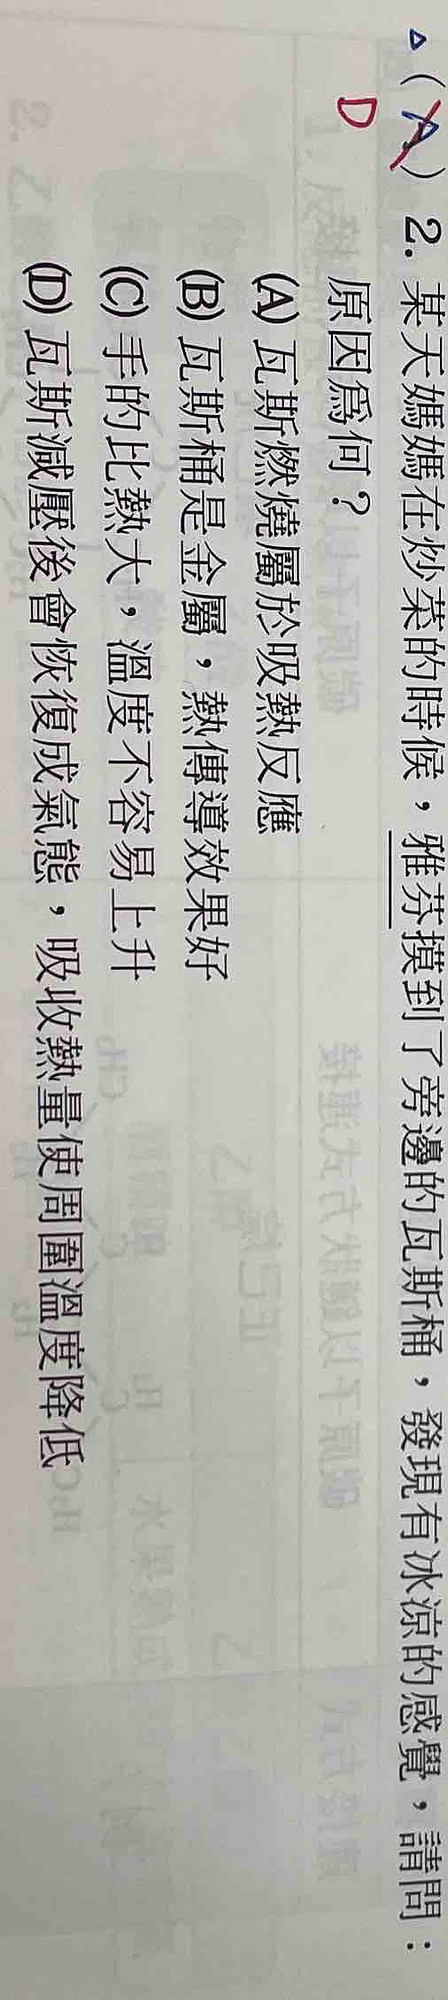 △(A) 2. 某天媽媽在炒菜的時候，雅芬摸到了旁邊的瓦斯桶，發現有冰涼的感覺，請問：
D
原因為何？
(A) 瓦斯燃燒屬於吸熱反應
(B) 瓦斯桶是金屬，熱傳導效果好
(C) 手的比熱大，溫度不容易上升
(D) 瓦斯減壓後會恢復成氣態，吸收熱量使周圍溫度降低